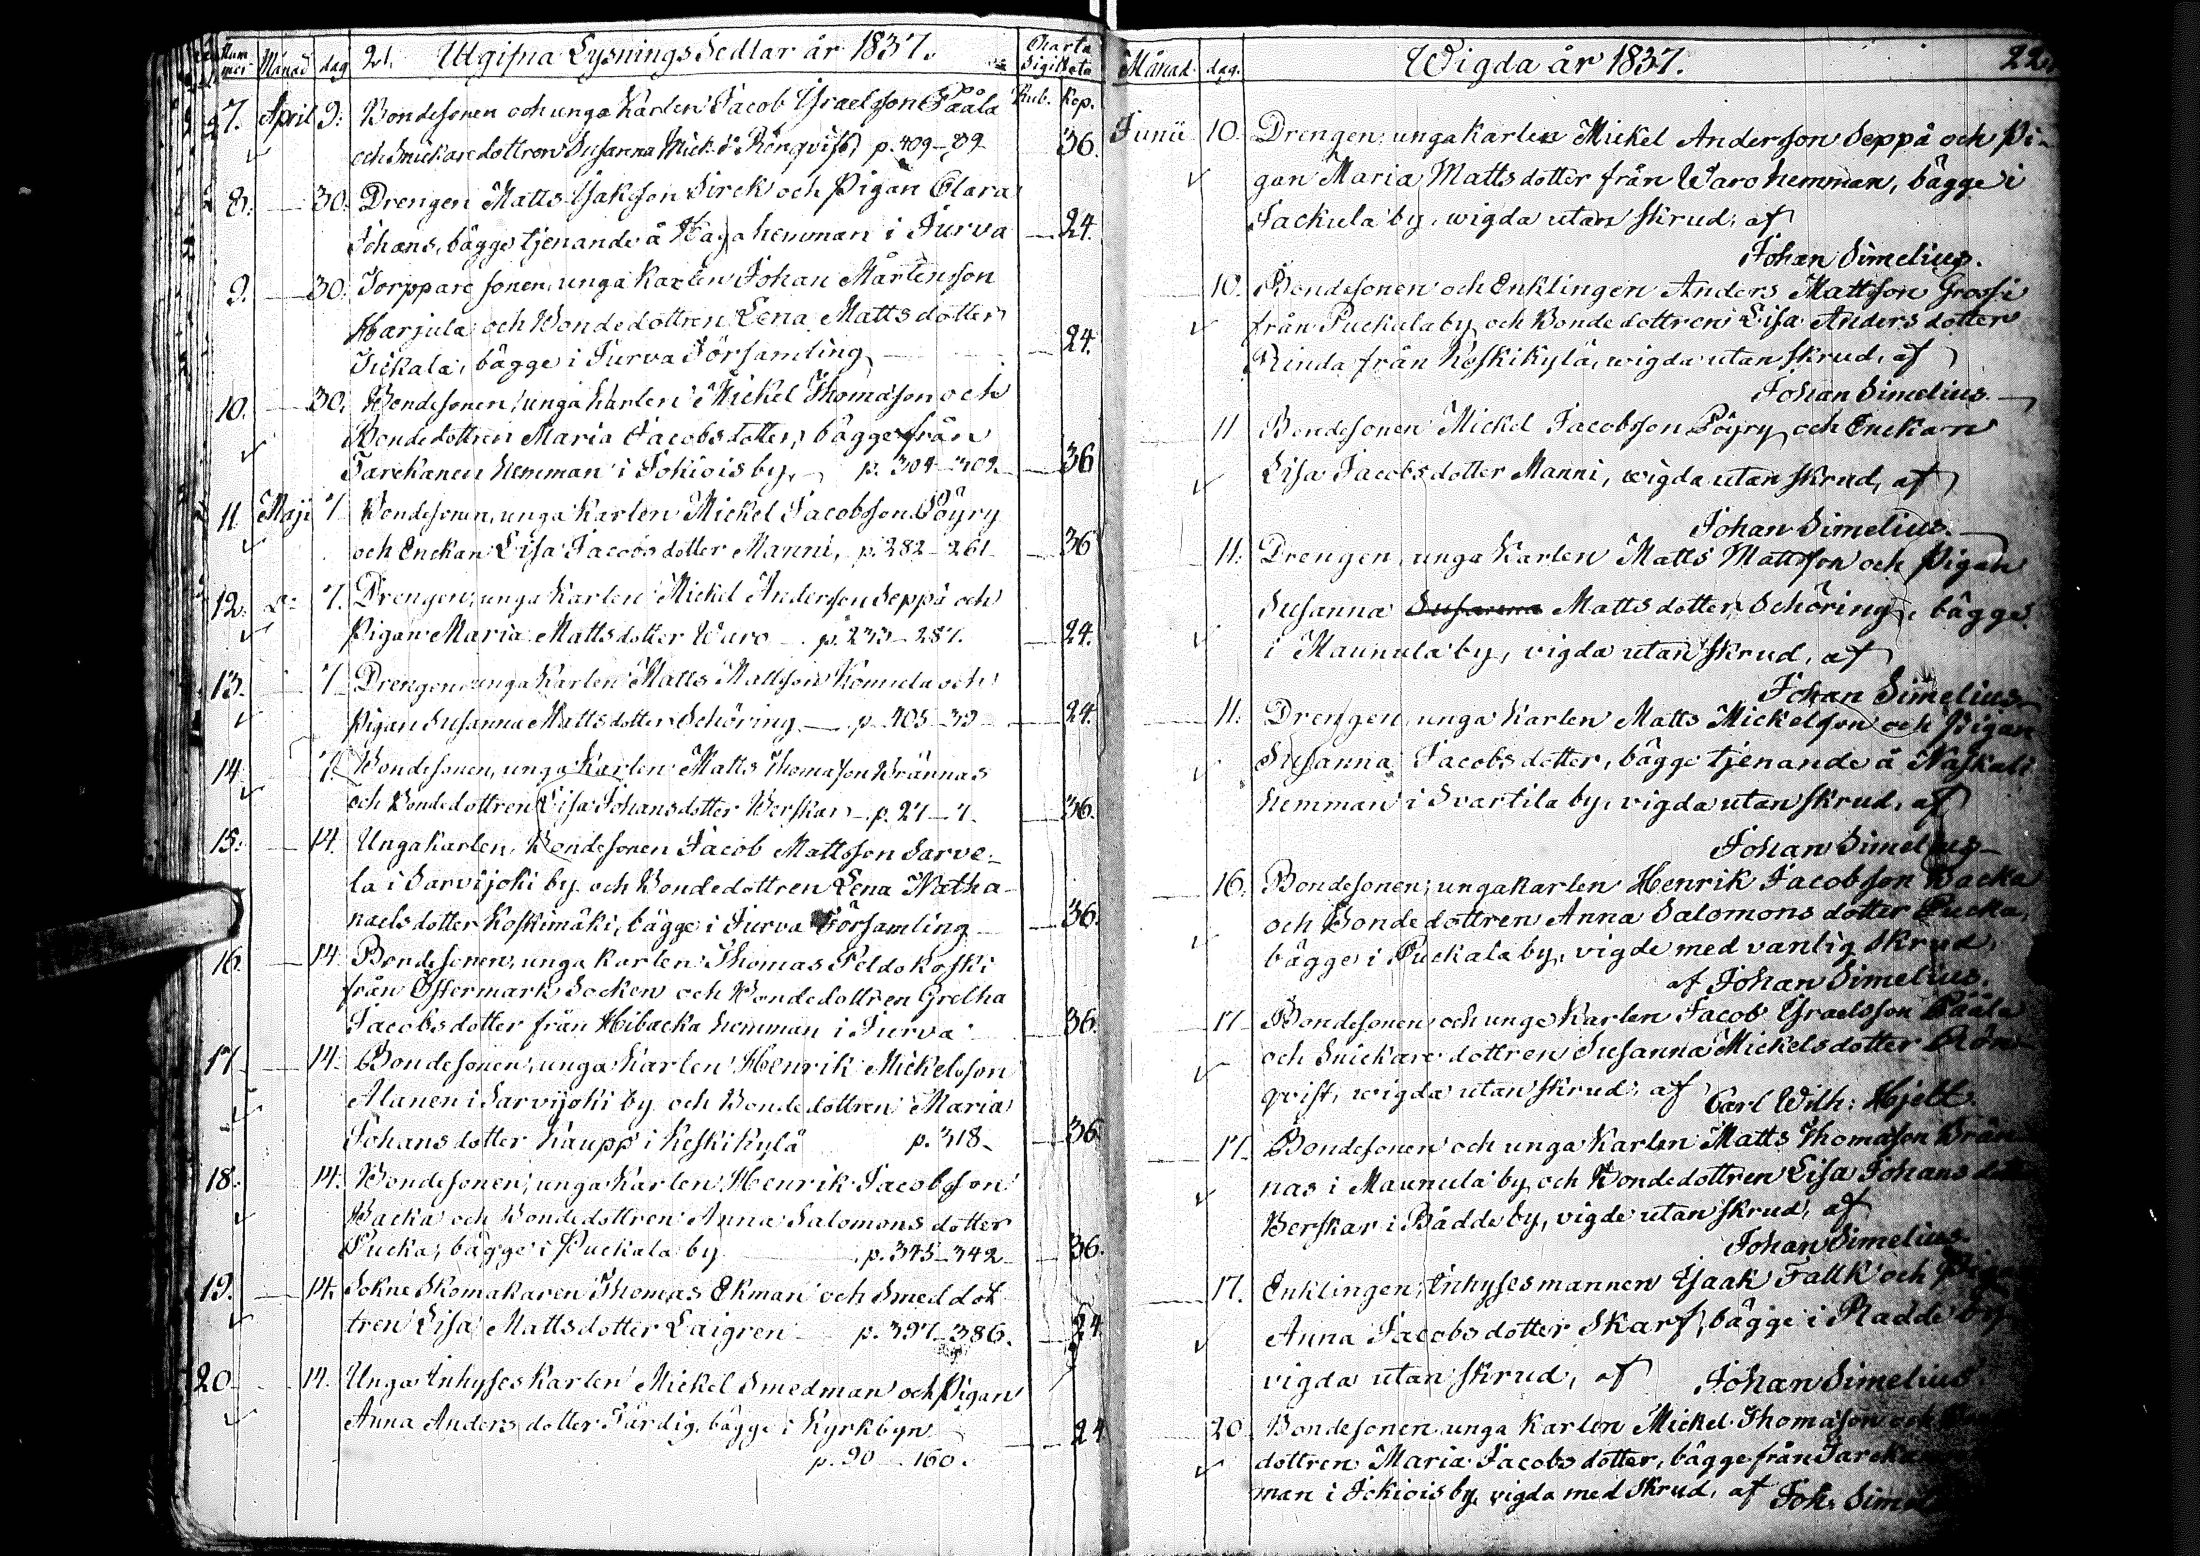 Num mer Månad dag 21. Utgifna Lysnings Sedlar år 1837. Charta Sigillata
Rub. Kop.
7. April 9. Bondesonen och unga Karlen Jacob Ysraelsson Pääla
och Snickaredottren Susanna Mick.dr Rönqvist, p. 409-89 36.
8. 30. Drengen Matts Ysaksson Sirck och Pigan Clara
Johans, bägge tjenande å Haga hemman i Jurva 24.
9. 30. Torppare sonen, unga Karlen Johan Mårtensson
Harjula och Bondedottren Lena Matts dotter
Ickala, bägge i Jurva Församling 24.
10. 30. Bondesonen, unga Karlen Mickel Thomasson och
Bondedottren Maria Jacobsdotter, bägge från
Tarckanen hemman i Jokiois by, p. 304-302 36
11. Maji 7. Bondesonen, unga Karlen Mickel Jacobsson Pöyry
och Enckan Lisa Jacobsdotter Manni, p. 282-261 36
12. d:o 7. Drengen, unga Karlen Mickel Andersson Seppä och
Pigan Maria Mattsdotter Waro p. 233-287. 24.
13. 7. Drengen unga Karlen Matts Mattsson Komula och
Pigan Susanna Mattsdotter Schöring p. 405-39 24.
14. 7. Bondesonen, unga Karlen Matts Thomasson Brännas
och Bondedottren Lisa Johansdotter Berskar p. 27-7. 36.
15. 14. Ungakarlen, Bondesonen Jacob Mattsson Sarve-
la i Sarvijoki by och Bondedottren Lena Natha-
naelsdotter Koskimäki, bägge i Jurva Församling 36.
16. 14. Bondesonen, unga karlen Thomas Peldokoski
från Östermark Socken och Bondedottren Gretha
Jacobsdotter från Hibacka hemman i Jurva 36.
17. 14. Bondesonen, unga Karlen Henrik Mickelsson
Alanen i Sarvijoki by och Bondedottren Maria
Johansdotter Kaupp i Keskikylä p. 318- 36
18. 14. Bondesonen, unga Karlen Henrik Jacobsson
Backa och Bondedottren Anna Salomons dotter
Pucka, bägge i Puckala by p. 345-342 36.
19. 14. Sokne Skomakaren Thomas Ekman och Smeddot
tren Lisa Mattsdotter Laigren p. 397-386. 24.
20 14. Unga Inhyses Karlen Mickel Smedman och Pigan
Anna Anders dotter Färdig, bägge i Kyrkbyn 24
p. 90 - 160.
Månad dag. Wigda år 1837. 22.
Junii 10. Drengen, unga Karlen Mickel Andersson Seppä och Pi-
gan Maria Matts dotter från Waro hemman, bägge i
Jackula by, wigda utan skrud, af
Johan Simelius.
10. Bondesonen och Enklingen Anders Mattsson Grossi
från Puckala by och Bonde dottren Lisa Anders dotter
Rinda från Keskikylä, wigda utan skrud, af
Johan Simelius.
11 Bondesonen Mickel Jacobsson Pöyry och Enckan
Lisa Jacobs dotter Manni, wigda utan skrud, af
Johan Simelius.
11. Drengen, unga Karlen Matts Mattsson och Pigan
Susanna Susanna Matts dotter Schöring, bägge
i Maunula by, vigda utan skrud, af
Johan Simelius
11. Drengen, unga Karlen Matts Mickelsson och Pigan
Susanna Jacobs dotter, bägge tjenande å Naskali
hemman i Svartila by, vigda utan skrud, af
Johan Simelius
16. Bondesonen, ungakarlen Henrik Jacobsson Backa
och Bonde dottren Anna Salomons dotter Pucka,
bägge i Puckala by, vigde med vanlig skrud,
af Johan Simelius.
17 Bondesonen och unga Karlen Jacob Ysraelsson Pääla
och Snickare dottren Susanna Mickels dotter Rön-
qvist, wigda utan skrud, af Carl Wilh: Hjelt.
17. Bondesonen och unga Karlen Matts Thomasson Brän
nas i Maunula by och Bondedottren Lisa Johans
Berskar i Rädde by, vigde utan skrud, af
Johan Simelius.
17. Enklingen, Inhyses mannen Ysaak Fallk och
Anna Jacobs dotter Skarf, bägge i Radde by
vigda utan skrud, af Johan Simelius
20 Bondesonen unga Karlen Mickel Thomasson och
dottren Maria Jacobs dotter, bägge från
man i Jokiois by, vigda med skrud, af Joh.